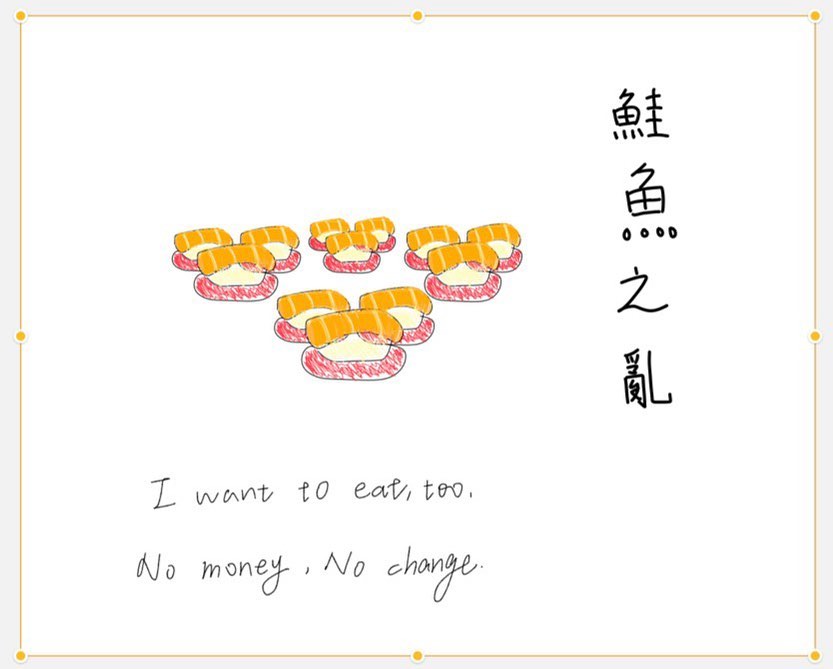 鮭魚之亂
I want to eat, too.
No money, No change.